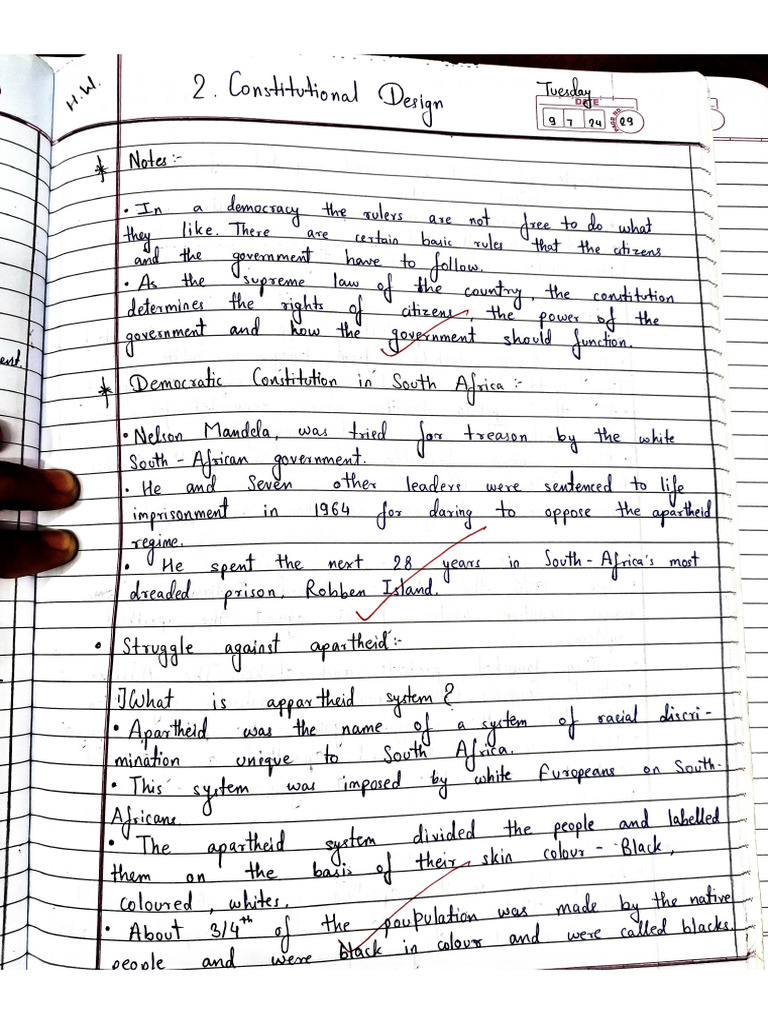 H.W.
2. Constitutional Design
Tuesday
DATE
9 7 24
29
* Notes:-
• In a democracy the rulers are not free to do what
they like. There are certain basic rules that the citizens
and the government have to follow.
• As the supreme law of the country, the constitution
determines the rights of citizens, the power of the
government and how the government should function.
* Democratic Constitution in South Africa:-
• Nelson Mandela, was tried for treason by the white
South-African government.
• He and Seven other leaders were sentenced to life
imprisonment in 1964 for daring to oppose the apartheid
regime.
• He spent the next 28 years in South-Africa's most
dreaded prison, Robben Island.
• Struggle against apartheid:-
1) What is appartheid system?
• Apartheid was the name of a system of racial discri-
mination unique to South Africa.
• This system was imposed by white Europeans on South-
Africans
• The apartheid system divided the people and labelled
them on the basis of their skin colour - Black,
coloured, whites.
• About 3/4th of the poupulation was made by the native
people and were black in colour and were called blacks.
ent.